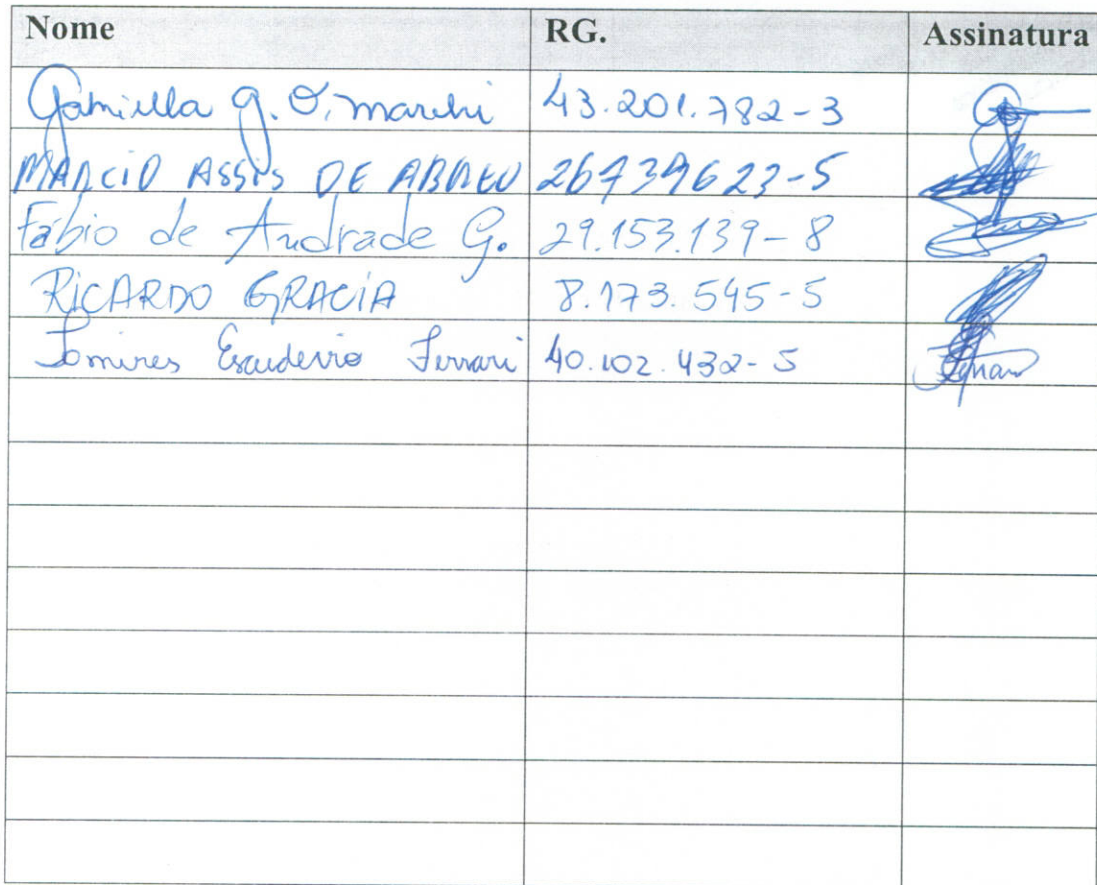 Nome RG. Assinatura
Gamiella G. O. Marchi 43.201.782-3
MARCIO ASSIS DE ABREU 26739623-5
Fábio de Andrade G. 29.153.139-8
RICARDO GRACIA 8.173.545-5
Tamires Escudeiro Ferrari 40.102.432-5